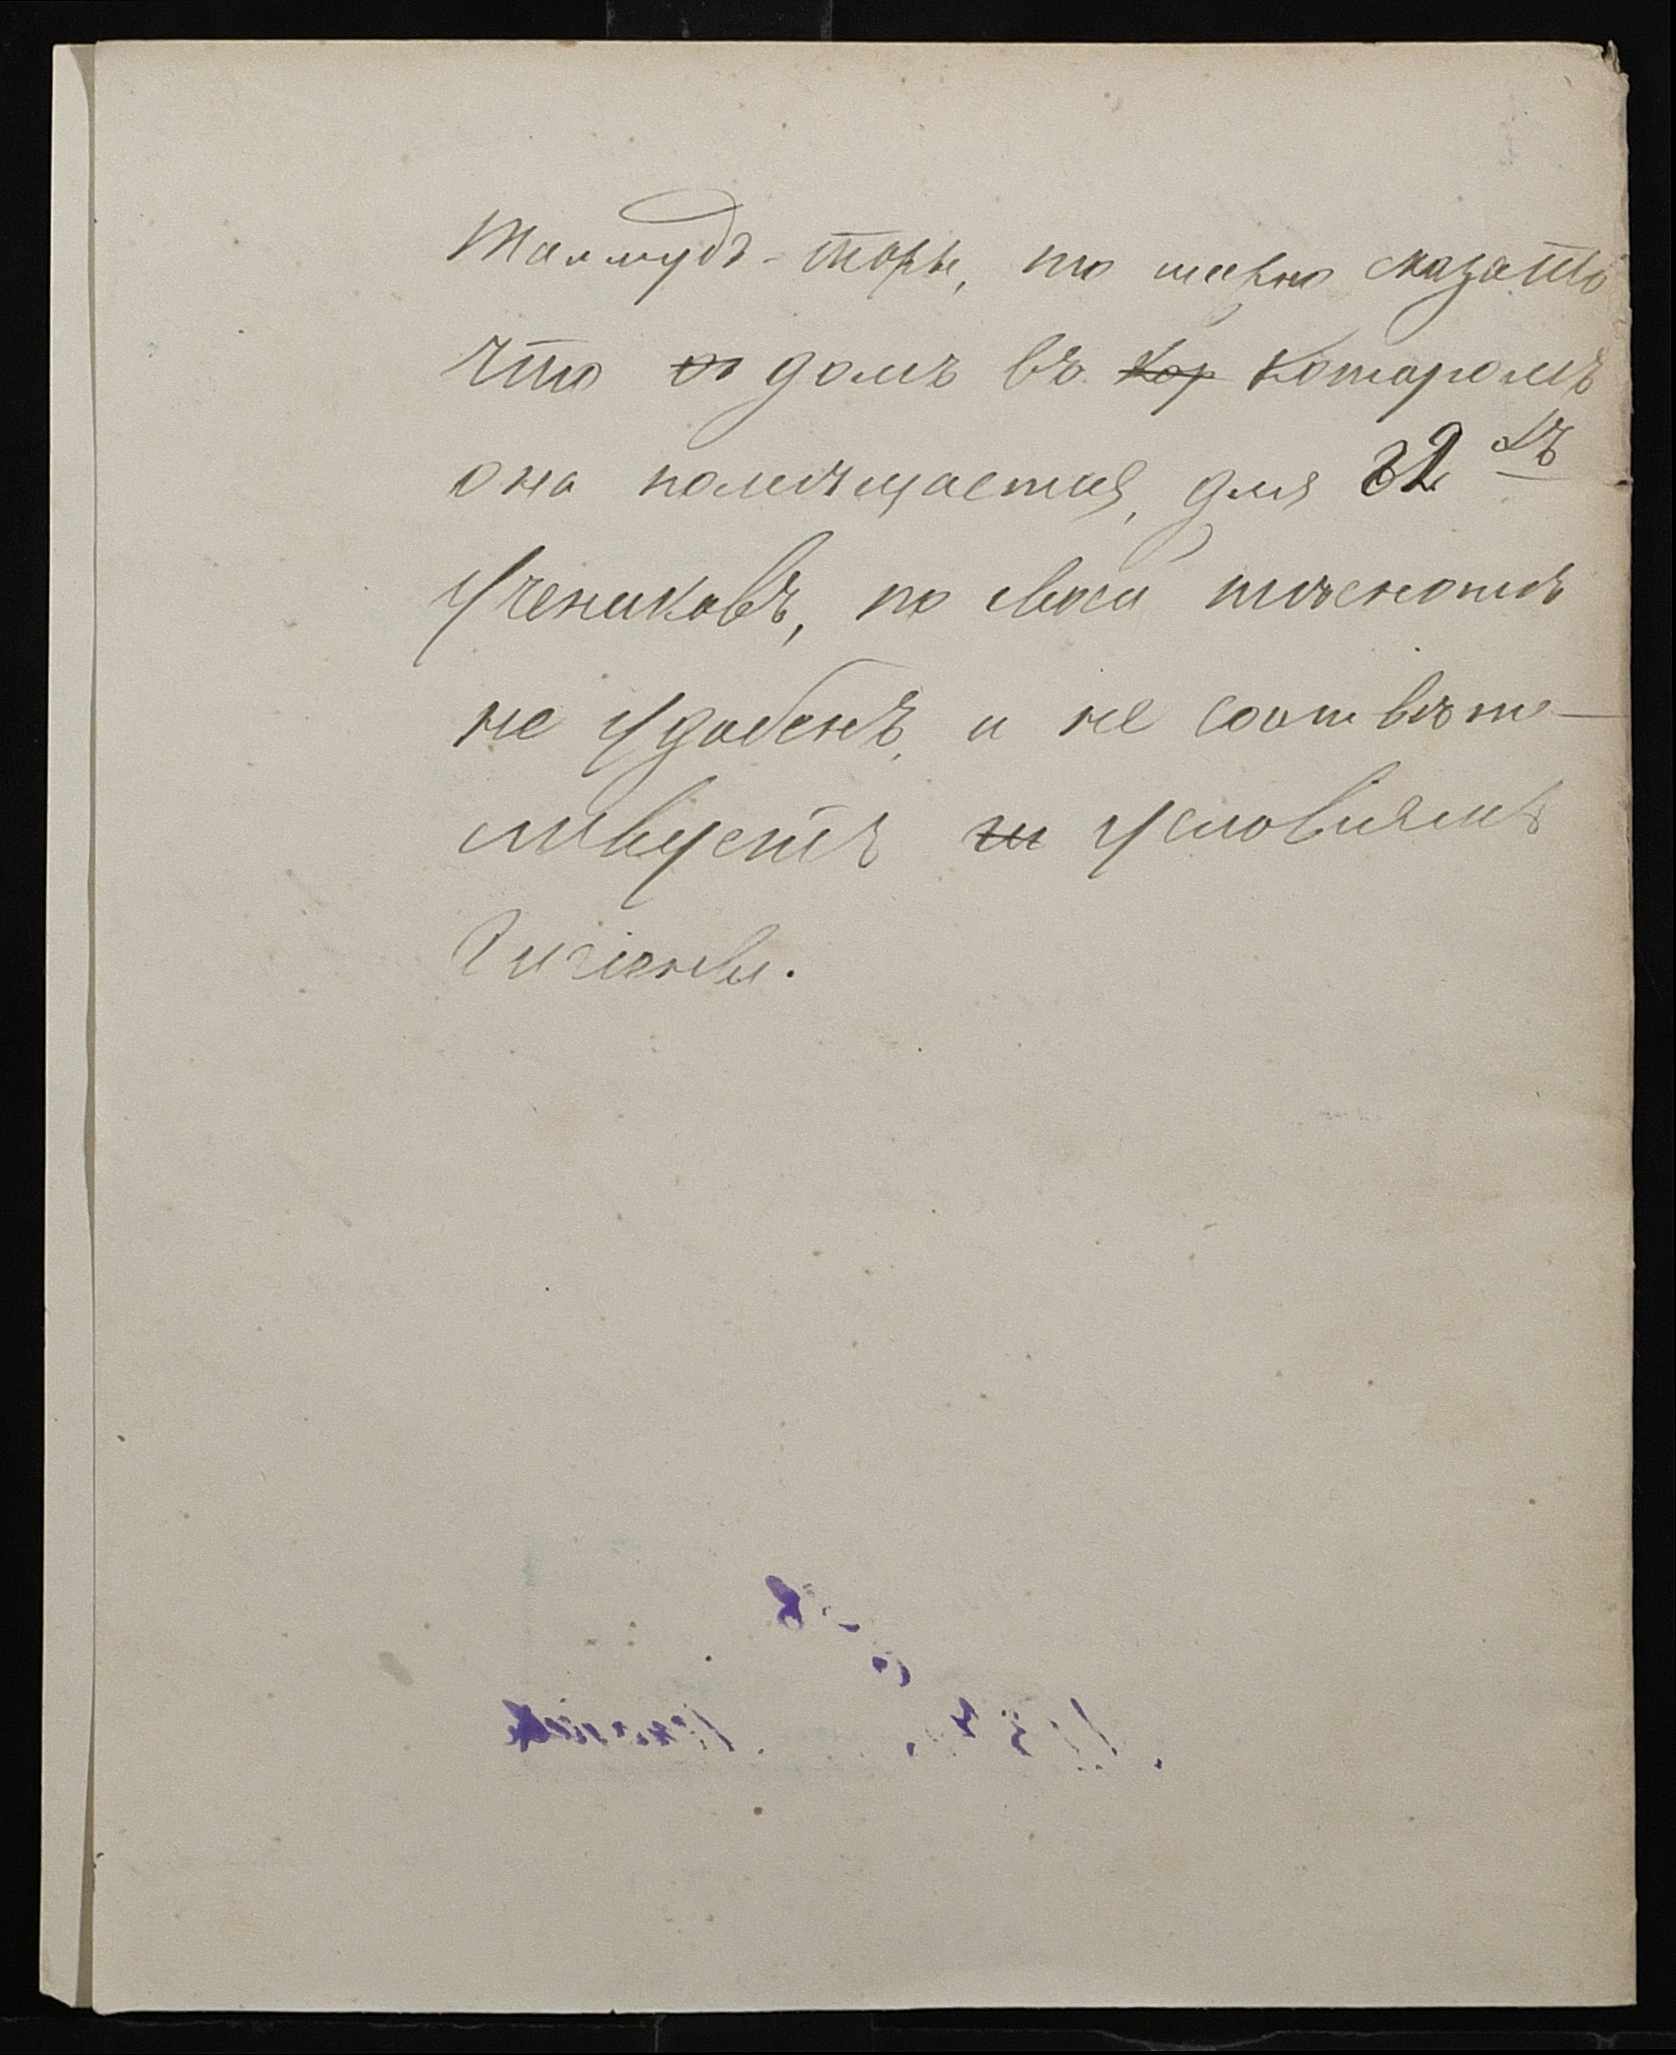 Талмудъ-торы, то можно сказать
что домъ въ кор которомъ
она помѣщается, для 82хъ
учениковъ, по своей тѣснотѣ
не удобенъ, и не соотвѣт-
ствуетъ условіямъ
Гигіены.